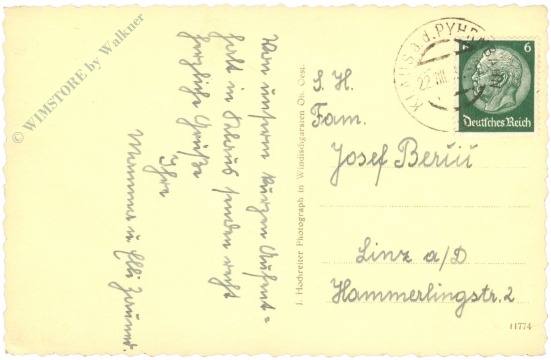 Von unserem kurzen Aufent=
halt in Klaus senden recht
herzliche Grüße
Ihre
Mamma u. Elli
I. Hochreiter Photograph in Windischgarsten Ob. Oest.
KLAUS a.d. PYHRNBAHN
22. VIII
6
Deutsches Reich
S. H.
Fam.
Josef
Linz a/D
Hammerlingstr. 2
11774
© WIMSTORE by Walkner